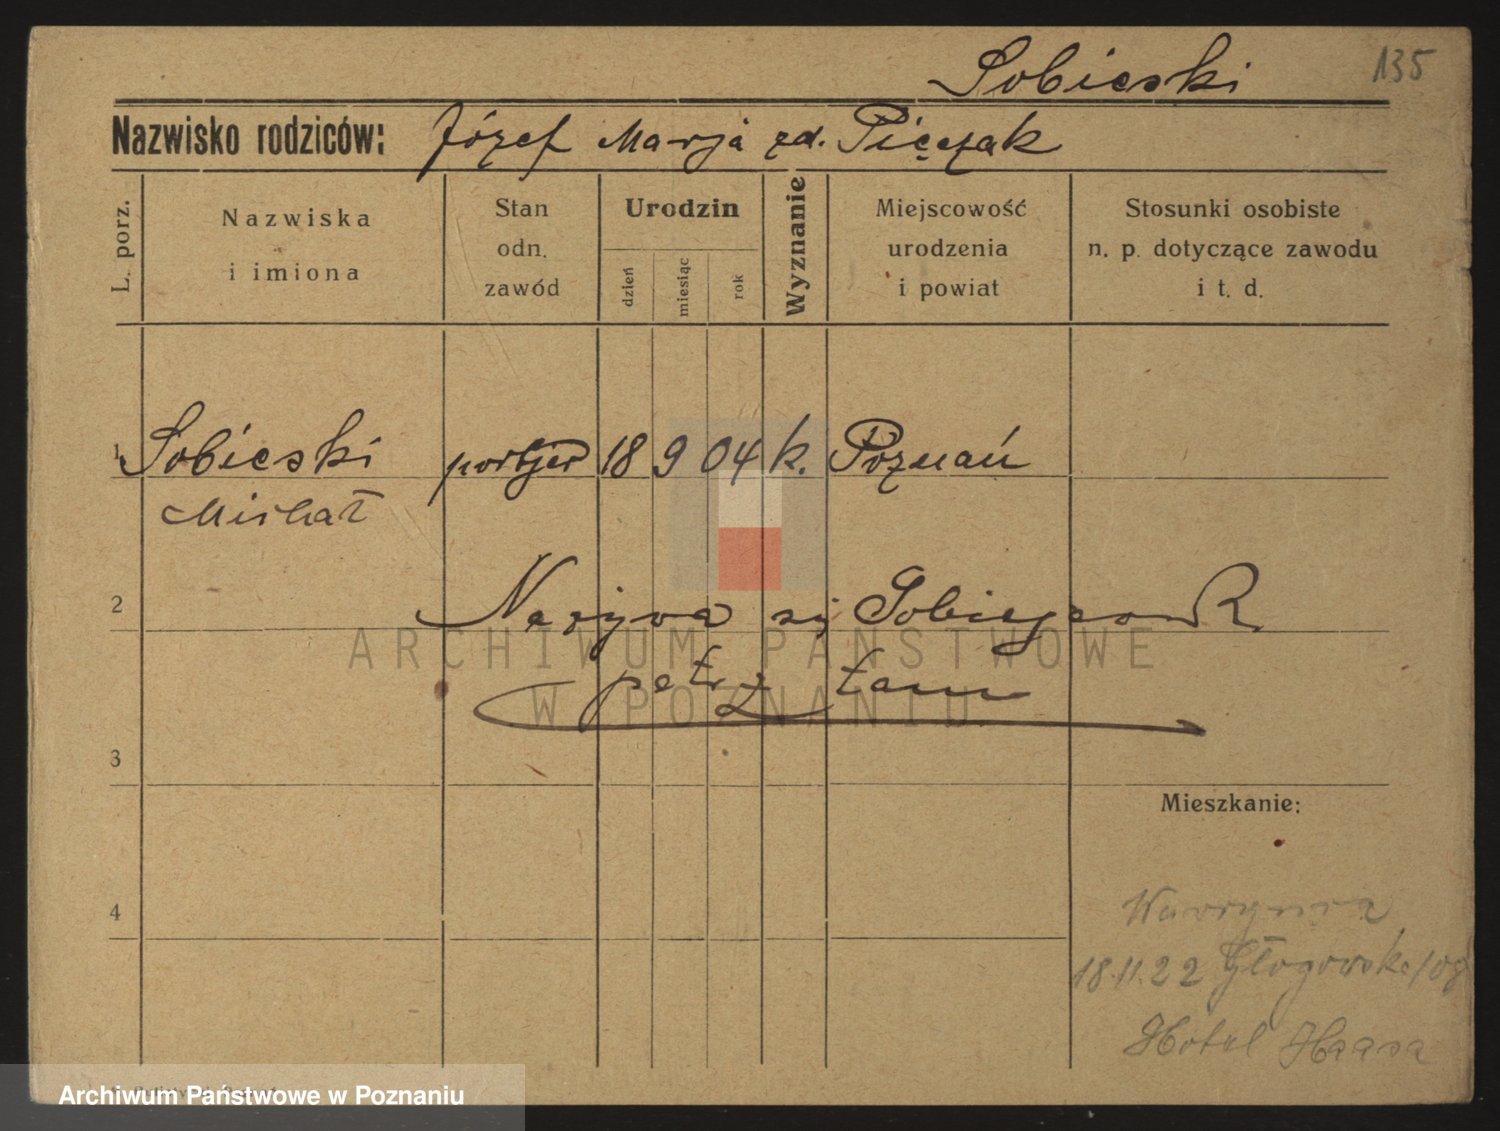 135
Sobieski
Nazwisko rodziców: Józef Marja zd. Pięczak
L. porz.
Nazwiska
i imiona
Stan
odn.
zawód
Urodzin
dzień
miesiąc
rok
Wyznanie
Miejscowość
urodzenia
i powiat
Stosunki osobiste
n. p. dotyczące zawodu
i t. d.
1 Sobieski portjer 18 9 04 k. Poznań
Michał
2 Nazywa się Sobiejczak
ARCHIWUM PAŃSTWOWE
W POZNANIU
patrz tam
3
Mieszkanie:
4
Wawrzyńca
18.11.22 Głogowska 108
Hotel Haasa
Archiwum Państwowe w Poznaniu